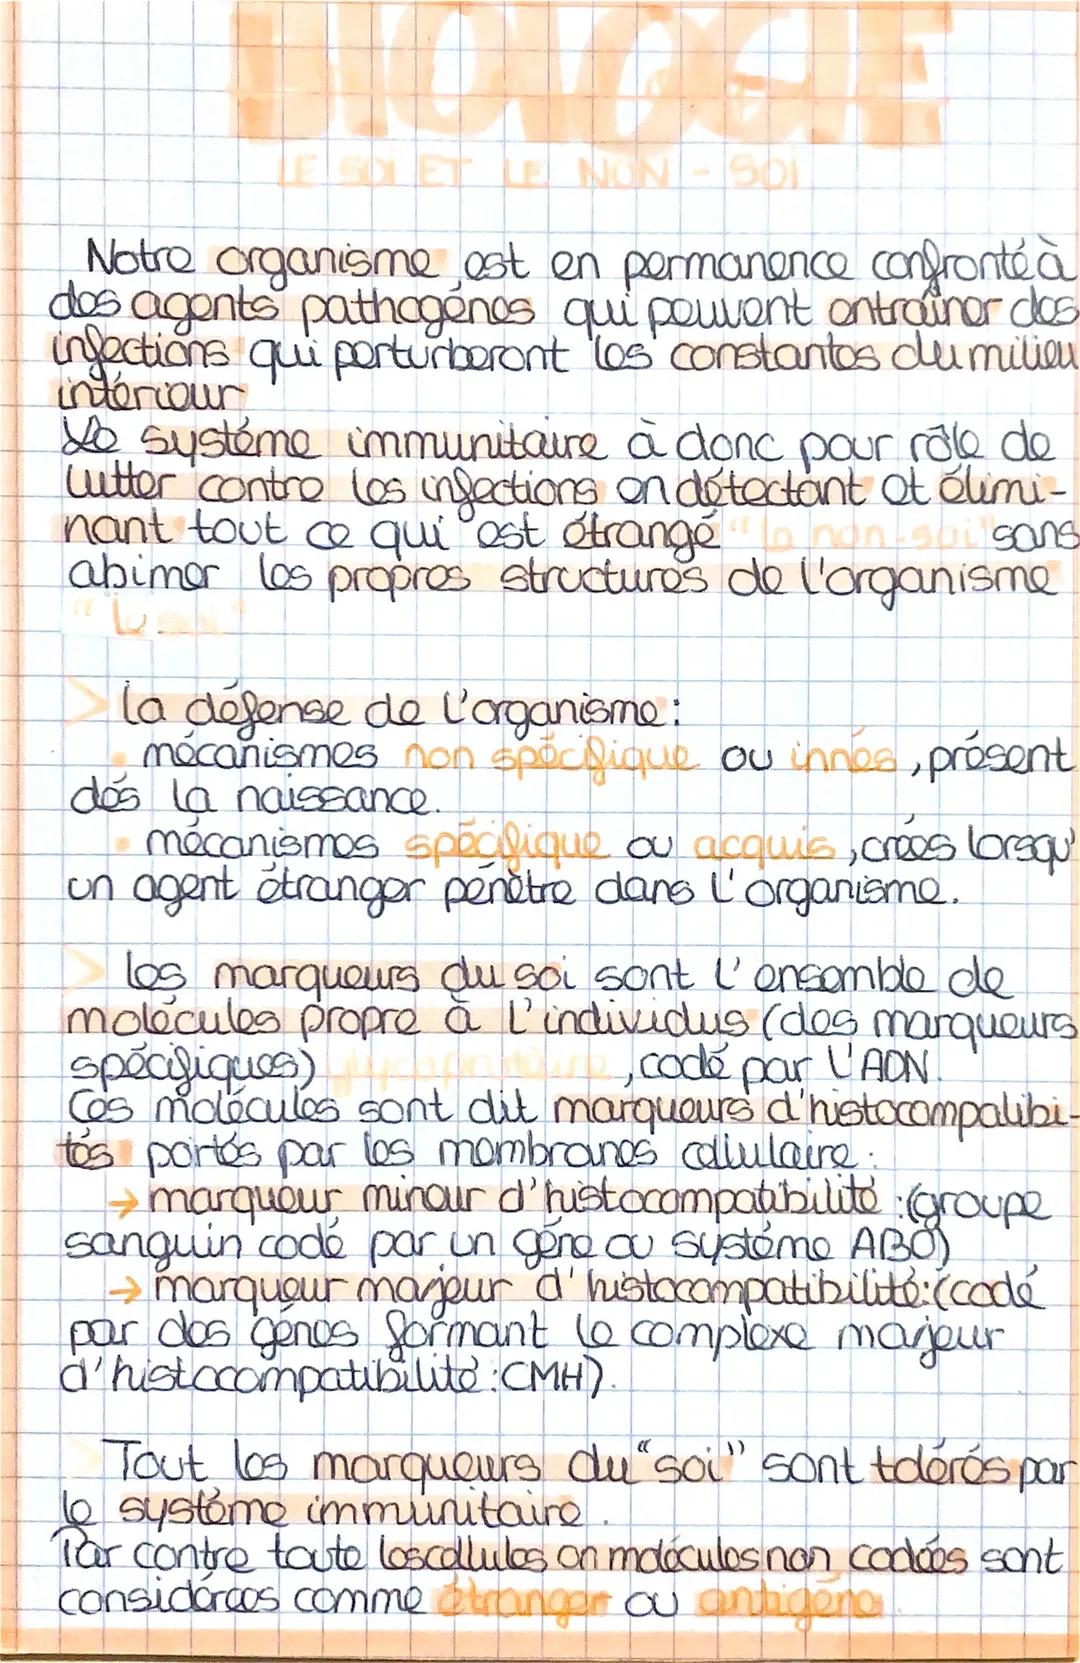 BIOLOGIE
LE SOI ET LE NON - SOI
Notre organisme est en permanence confronté à
des agents pathogénes qui peuvent entraîner des
infections qui perturberont les constantes du milieu
intérieur
Le systéme immunitaire à donc pour rôle de
lutter contre les infections en détectant et élimi-
nant tout ce qui est étrangé "le non-soi" sans
abimer les propres structures de l'organisme
"le soi"
> la défense de l'organisme :
• mécanismes non spécifique ou innés, présent
dés la naissance.
• mécanismes spécifique ou acquis, crées lorsqu'
un agent étranger pénètre dans l'organisme.
> les marqueurs du soi sont l'ensemble de
molécules propre à l'individus (des marqueurs
spécifiques) glycoprotéine, codé par l'ADN.
Ces molécules sont dit marqueurs d'histocompatibi-
tés portés par les membranes cellulaire :
→ marqueur mineur d'histocompatibilité : (groupe
sanguin codé par un géne ou systéme ABO)
→ marqueur majeur d'histocompatibilité : (codé
par des génes formant le complexe majeur
d'histocompatibilité : CMH).
> Tout les marqueurs du "soi" sont tolérés par
le systéme immunitaire.
Par contre toute les cellules on molécules non codées sont
considérées comme étranger ou antigéne.